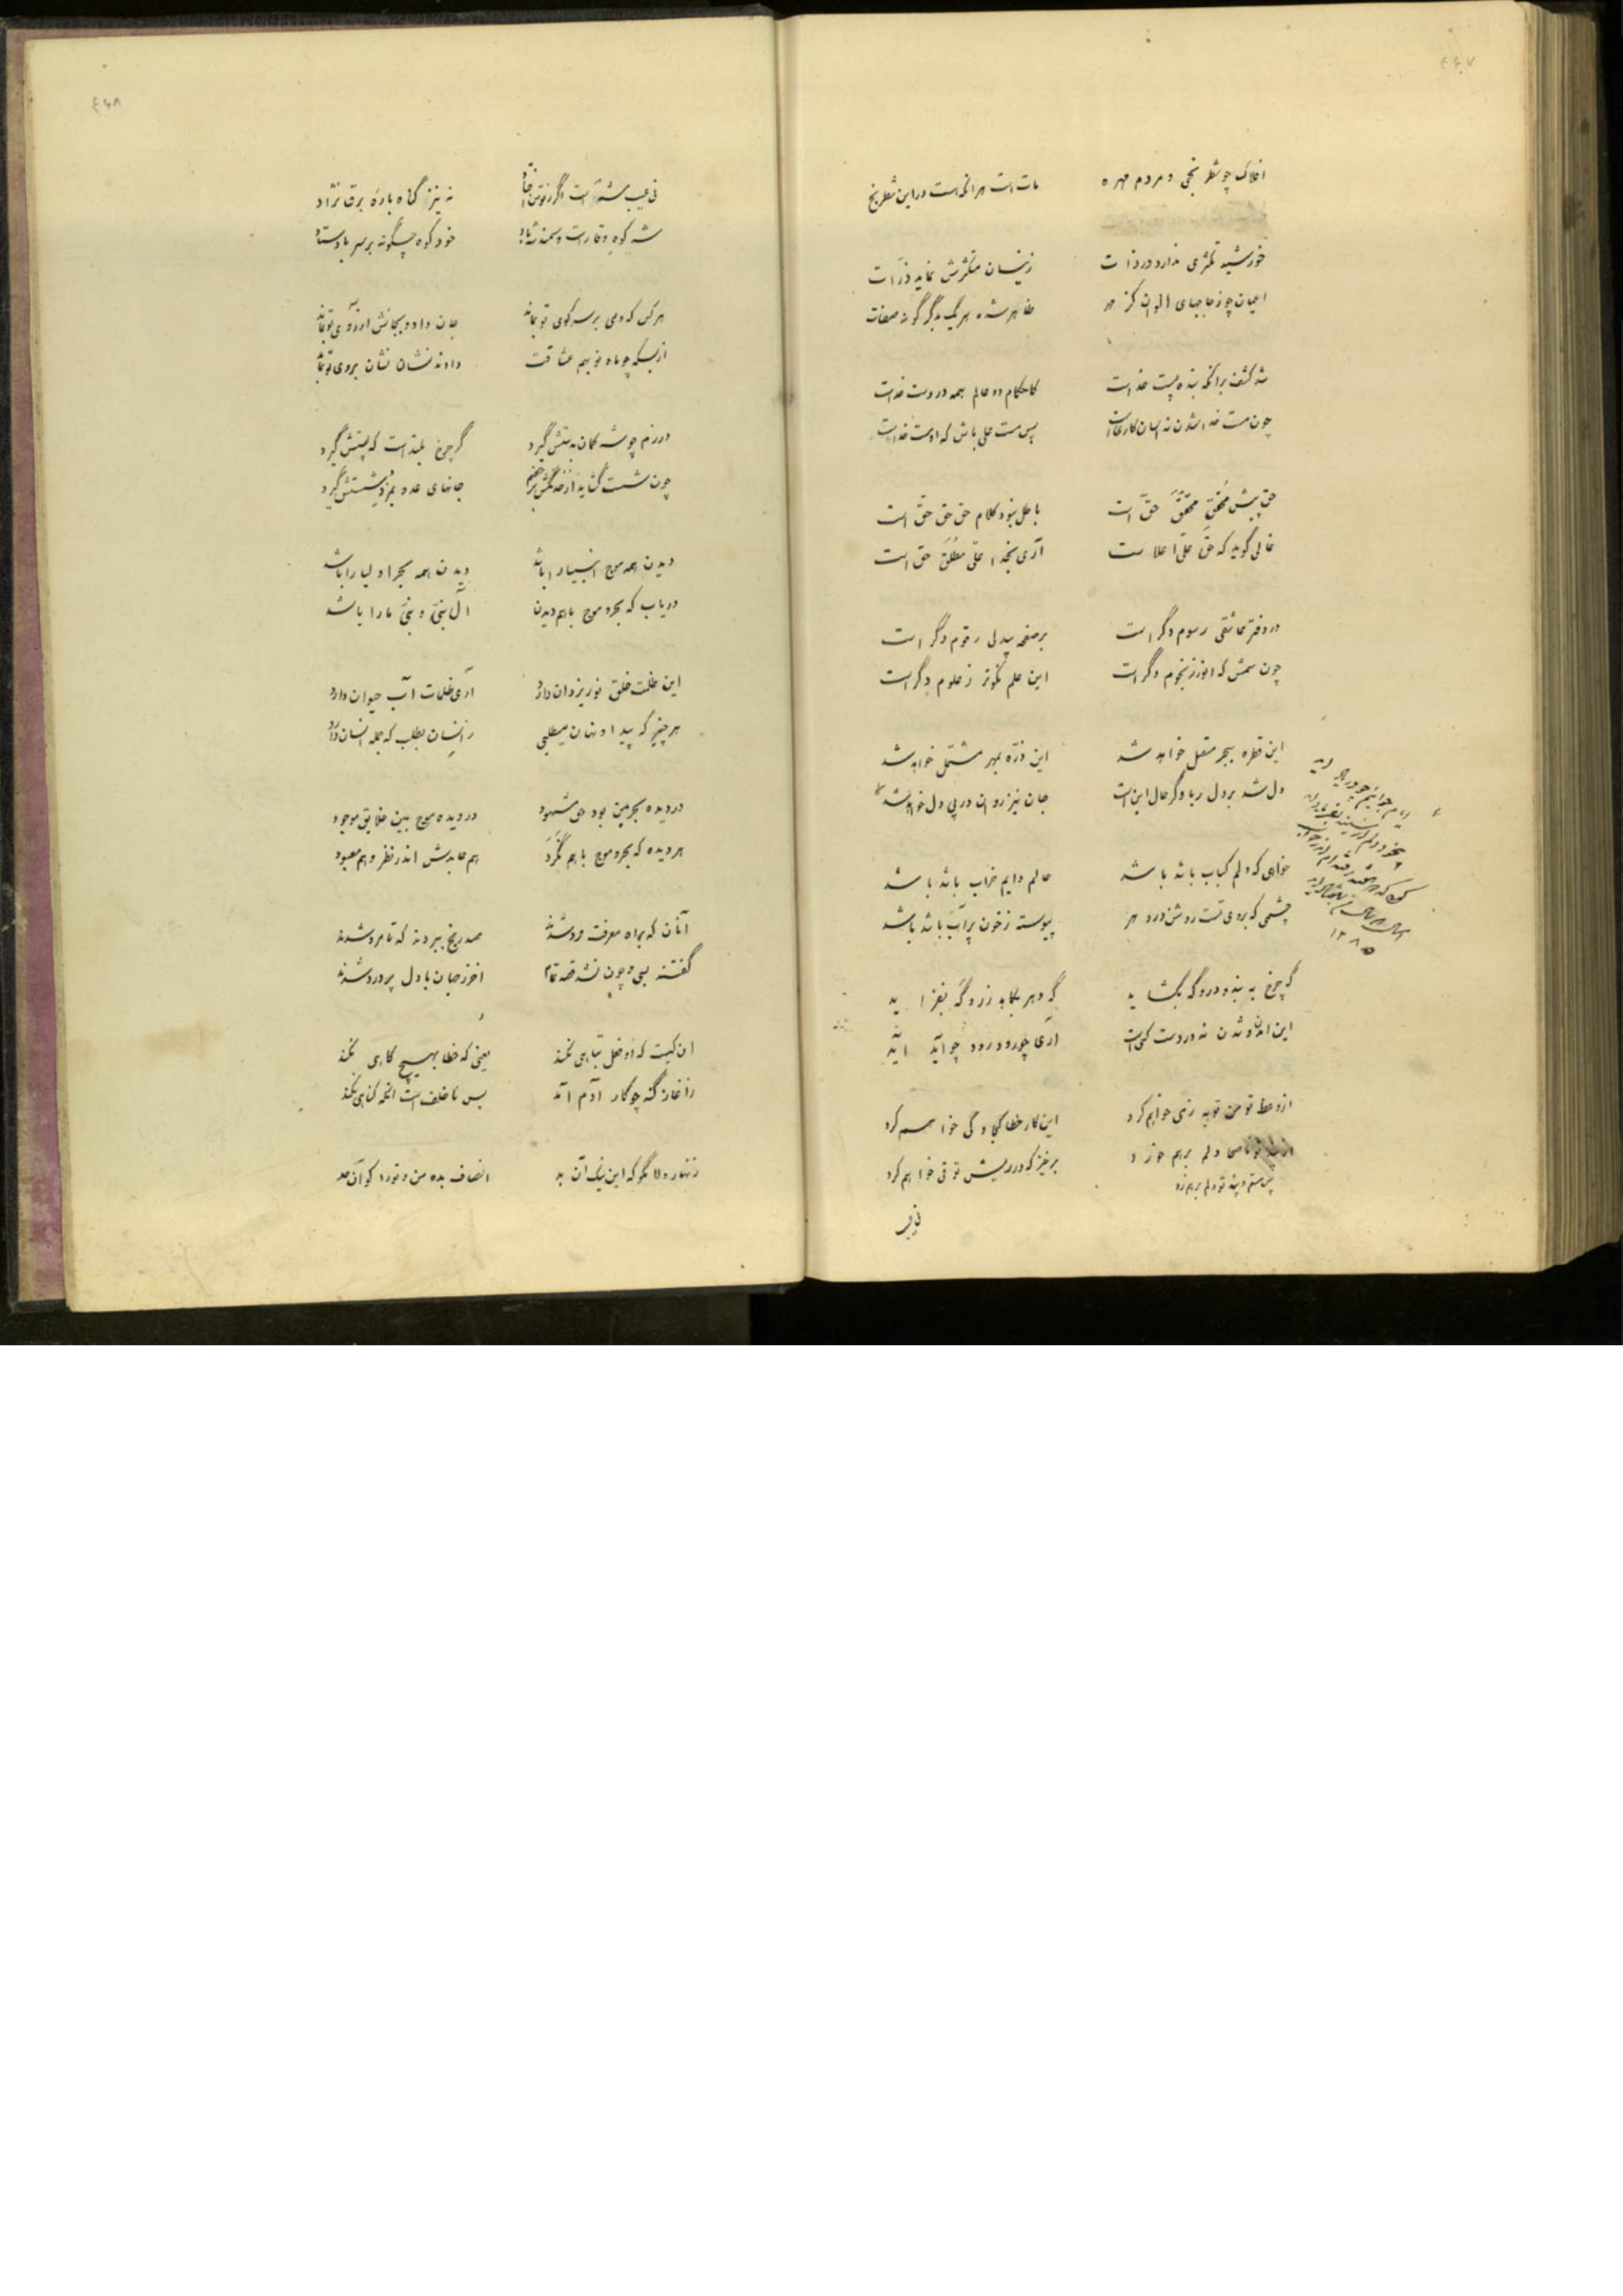 افلاک چو شطرنجی و مردم مهره
مات است هر آنکه هست در این شطرنج
خورشید تکثری ندارد در ذات
زینسان متکثرش نماید ذرات
اعیان چو زجاجهای الوان کز مهر
ظاهر شده هر یک بدگر گونه صفات
شد کشف بر آنکه بنده پست خداست
کاحکام دو عالم همه در دست خداست
چون مست خدا شدن نه آسان کاریست
پس مست علی باش که او مست خداست
حق پیش محقق محقق حق است
باطل نبود کلام حق حق حق است
غالی گوید که حق علی اعلاست
آری بخدا علی مطلق حق است
در دفتر عاشقی رسوم دگر است
بر صفحه بیدلی رقوم دگر است
چون شمس که انور ز نجوم دگر است
این علم نکوتر ز علوم دگر است
این قطره ببحر متصل خواهد شد
این ذره بمهر مشتمل خواهد شد
دل شد بر دلربا و گر حال این است
جان نیز روان در پی دل خواهد شد
خواهی که دلم کباب باشد باشد
عالم دایم خراب باشد باشد
چشمی که بروی تست روشن در دهر
پیوسته ز خون پر آب باشد باشد
گه چرخ به بندد در و گه بگشاید
گه دهر بکاهد زر و گه بفزاید
این آمدن و شدن نه در دست کسی است
آری چو رود رود چو آید آید
از وعظ تو من توبه ز می خواهم کرد
این کار خطا کجا و کی خواهم کرد
ناصحا دلم برهم خورد
برخیز که در ریش تو قی خواهم کرد
پس مستم و پند تو دلم برهم زد
ایام جوانیم چو
۱۲۸۵
نی عیب
۴۶۸
نی عیب شه است اگر ز توسن افتاد
نه نیز گناه باره برق نژاد
شه کوه وقار است و سمند شه باد
خود کوه چگونه بر سر باد ستاد
هر کس که دمی بر سر کوی تو بماند
جان داد و بجانش آرزوی تو بماند
از بسکه چو ماه نو بهم عشاقت
دادند نشان نشان بروی تو نماند
در رزم چو شه کمان بدستش گیرد
گر چرخ بلند است که پستش گیرد
چون شست گشاید از خدنگش بر خصم
جانهای عدو بمزد شستش گیرد
دیدن همه موج انبیا را باشد
دیدن همه بحر اولیا را باشد
دریاب که بحر و موج با هم دیدن
آل نبی و نبی ما را باشد
این ظلمت خلق نور یزدان دارد
آری ظلمات آب حیوان دارد
هر چیز که پیدا و نهان میطلبی
ز انسان بطلب که جمله انسان دارد
در دیده بحر بین بود حق مشهود
در دیده موج بین خلایق موجود
هر دیده که بحر و موج با هم نگرد
هم عابدش اندر نظر و هم معبود
آنان که براه معرفت فرد شدند
صد رنج ببردند که تا مرد شدند
گفتند بسی و چون نشد قصه تمام
آخر ز جهان با دل پر درد شدند
آن کیست که او فعل تباهی نکند
یعنی که خطا بهیچ گاهی نکند
ز آغاز گنه چو کار آدم آمد
پس ناخلف است آنکه گناهی نکند
زنهار دلا مگو که این نیک آن بد
انصاف بده من و تو را کو آن حد